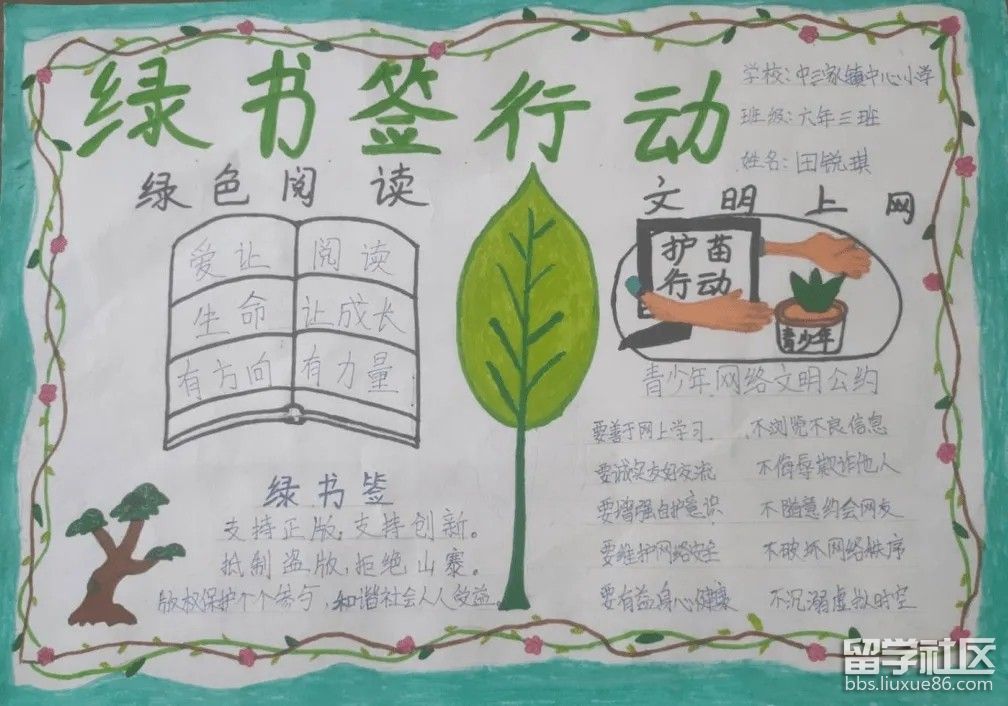 绿书签行动
学校:中三家镇中心小学
班级:六年三班
姓名:田锐琪
绿色阅读
爱让 阅读
生命 让成长
有方向 有力量
绿书签
支持正版,支持创新。
抵制盗版,拒绝山寨。
版权保护个个参与,和谐社会人人受益。
文明上网
护苗
行动
青少年
青少年网络文明公约
要善于网上学习 不浏览不良信息
要诚实友好交流 不侮辱欺诈他人
要增强自护意识 不随意约会网友
要维护网络安全 不破坏网络秩序
要有益身心健康 不沉溺虚拟时空
留学社区
bbs.liuxue86.com